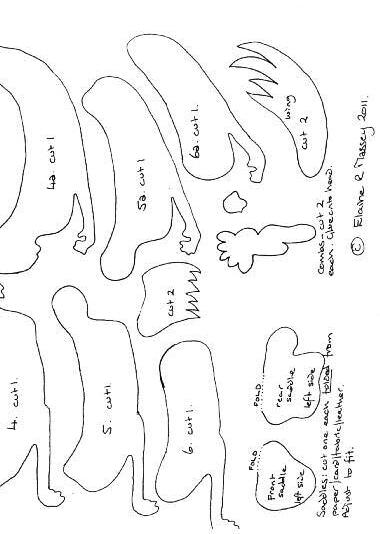 4a cut 1
5a. cut 1
6a. cut 1.
wing
cut 2
combs - cut 2
each. Glue onto head.
© Elaine R Massey 2011.
cut 2
4. cut 1.
5. cut 1.
6. cut 1.
FOLD....
rear
saddle
left side
FOLD.
Front
saddle
left side
Saddles: cut one each folded from
paper/card/fabric/leather.
Adjust to fit.